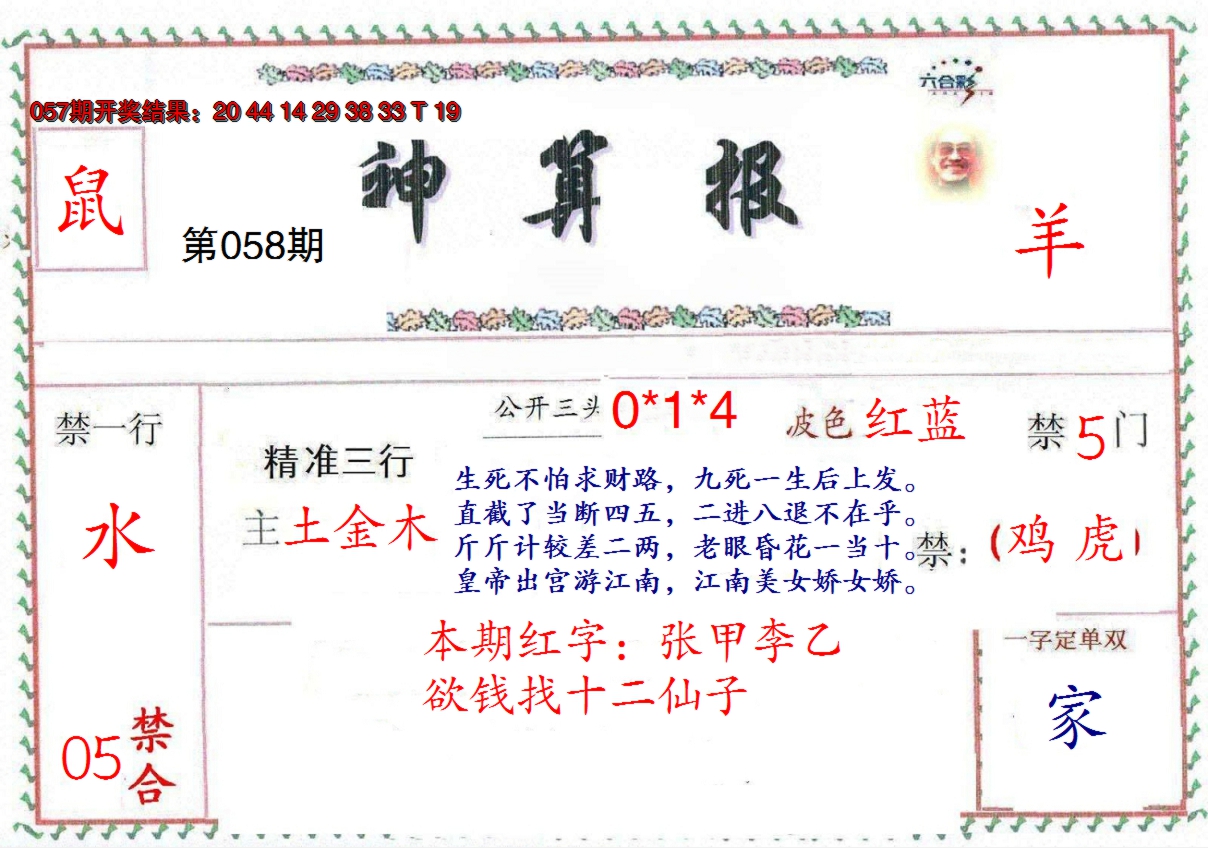 六合彩
057期开奖结果：20 44 14 29 38 33 T 19
神算报
鼠
第058期
羊
禁一行
水
05
禁合
公开三头
0*1*4
波色 红蓝
禁5门
精准三行
主土金木
生死不怕求财路，九死一生后上发。
直截了当断四五，二进八退不在乎。
斤斤计较差二两，老眼昏花一当十。
皇帝出宫游江南，江南美女娇女娇。
禁：（鸡 虎）
本期红字：张甲李乙
欲钱找十二仙子
一字定单双
家